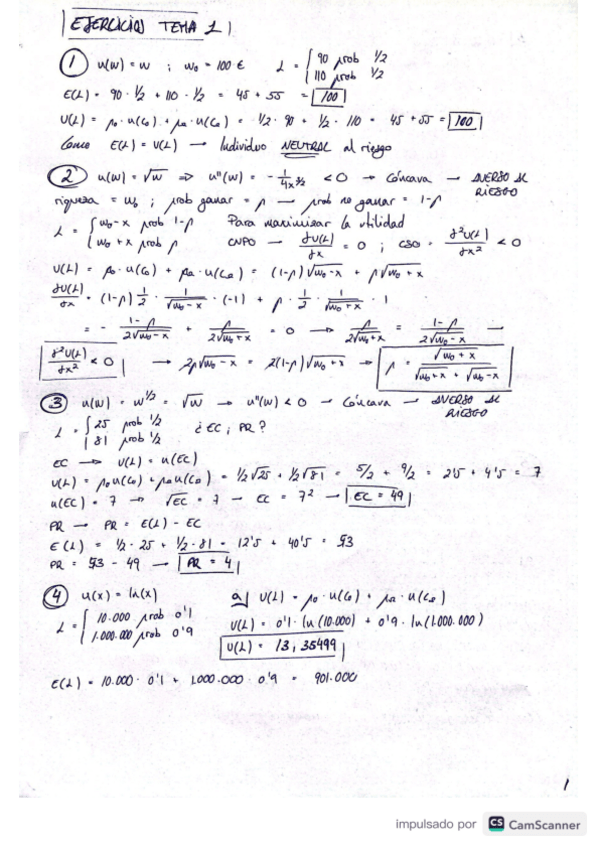 EJERCICIOS TEMA 1
① u(w) = w ; w₀ = 100 € L = { 90 prob 1/2
110 prob 1/2
E(L) = 90 · 1/2 + 110 · 1/2 = 45 + 55 = 100
U(L) = p₀ · u(c₀) + pₐ · u(cₐ) = 1/2 · 90 + 1/2 · 110 = 45 + 55 = 100
Como E(L) = U(L) → Individuo NEUTRAL al riesgo
② u(w) = √w ⇒ u''(w) = - 1/4x^3/2 < 0 → Cóncava → AVERSO AL RIESGO
riqueza = w₀ ; prob ganar = p → prob no ganar = 1-p
L = { w₀-x prob 1-p Para maximizar la utilidad
w₀+x prob p CNPO → ∂U(L)/∂x = 0 ; CSO = ∂²U(L)/∂x² < 0
U(L) = p₀ · u(c₀) + pₐ · u(cₐ) = (1-p)√w₀-x + p√w₀+x
∂U(L)/∂x = (1-p) 1/2 · 1/√w₀-x · (-1) + p · 1/2 · 1/√w₀+x · 1
= - 1-p/2√w₀-x + p/2√w₀+x = 0 → p/2√w₀+x = 1-p/2√w₀-x →
∂²U(L)/∂x² < 0 → 2p√w₀-x = 2(1-p)√w₀+x → p = √w₀+x/√w₀+x + √w₀-x
③ u(w) = w^1/2 = √w → u''(w) < 0 → Cóncava → AVERSO AL RIESGO
L = { 25 prob 1/2 ¿EC ; PR?
81 prob 1/2
EC → U(L) = u(EC)
U(L) = p₀u(c₀) + pₐu(cₐ) = 1/2√25 + 1/2√81 = 5/2 + 9/2 = 2'5 + 4'5 = 7
u(EC) = 7 → √EC = 7 → EC = 7² → EC = 49
PR → PR = E(L) - EC
E(L) = 1/2 · 25 + 1/2 · 81 = 12'5 + 40'5 = 53
PR = 53 - 49 → PR = 4
④ u(x) = ln(x) a) U(L) = p₀ · u(c₀) + pₐ · u(cₐ)
L = { 10.000 prob 0'1 U(L) = 0'1 · ln(10.000) + 0'9 · ln(1.000.000)
1.000.000 prob 0'9 U(L) = 13,35499
E(L) = 10.000 · 0'1 + 1.000.000 · 0'9 = 901.000
1
impulsado por CS CamScanner